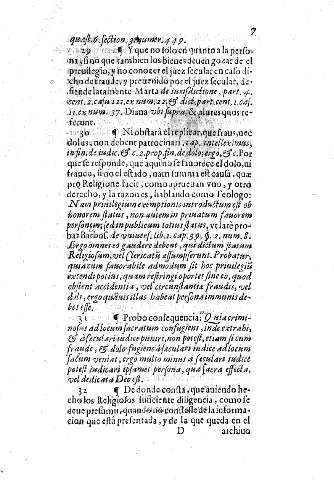 7
quæst. 6. section. 3. numer. 439.
29 ¶ Y que no solo en quanto a la perso-
na, sino que tambien los bienes deuen gozar de el
priuilegio, y no conocer el juez secular en caso di-
cho de fraude, y preuenido por el juez secular, de-
fiende latamente Marta de iurisdictione. part. 4.
cent. 2. casu 122. ex num. 22. & dict. part. cent. 1. cas.
ex num. 37. Diana vbi supra, & alij res quos re-
ferunt.
30 ¶ Ni obstará el replicar, que fraus, nec
dolus, non debent patrocinari, cap. intelleximus,
in fin. de iudic. & c. 2. prop. fin. de dolo, ergo, &c. Por
que se responde, que aqui no se fauorece el dolo, ni
fraude, sino el estado, nam summa est causa, quæ
pro Religione facit, como aprueban vno, y otro
derecho, y la razon es, hablando como Teologo:
Nam priuilegium exemptionis introductum est ob
honorem status, non autem in priuatum fauorem
personæ; sed in publicum totius status, vt late pro-
bat Barbos. de vniuers. lib. 1. cap. 39. §. 2. num. 8.
Ergo immeritò gaudere debent, qui dictum statum
Religiosum, vel Clericatus assumpserunt. Probatur,
quia cum fauorabile admodum sit hoc priuilegiũ
extendi potius, quam restringi oportet sine eo, quod
obsient accidentia, vel circunstantia fraudis, vel
doli, ergo qualitas illas habeat persona immunis de-
bet esse.
31 ¶ Probo consequencia: Quia crimi-
nosus ad locum sacratum confugiens, inde extrahi,
& à sæculari iudice puniri, non potest, etiam si cum
fraude, & dolo fugiens à sæculari iudice ad locum
sacrum veniat, ergo multo minus à sæculari iudice
potest iudicari ipsamet persona, qua sacra effecta,
vel dedicata Deo est.
32 ¶ De donde consta, que auiendo he-
cho los Religiosos suficiente diligencia, como se
deue presumir, quando no constasse de la informa-
cion que está presentada, y de la que queda en el
D archiuo